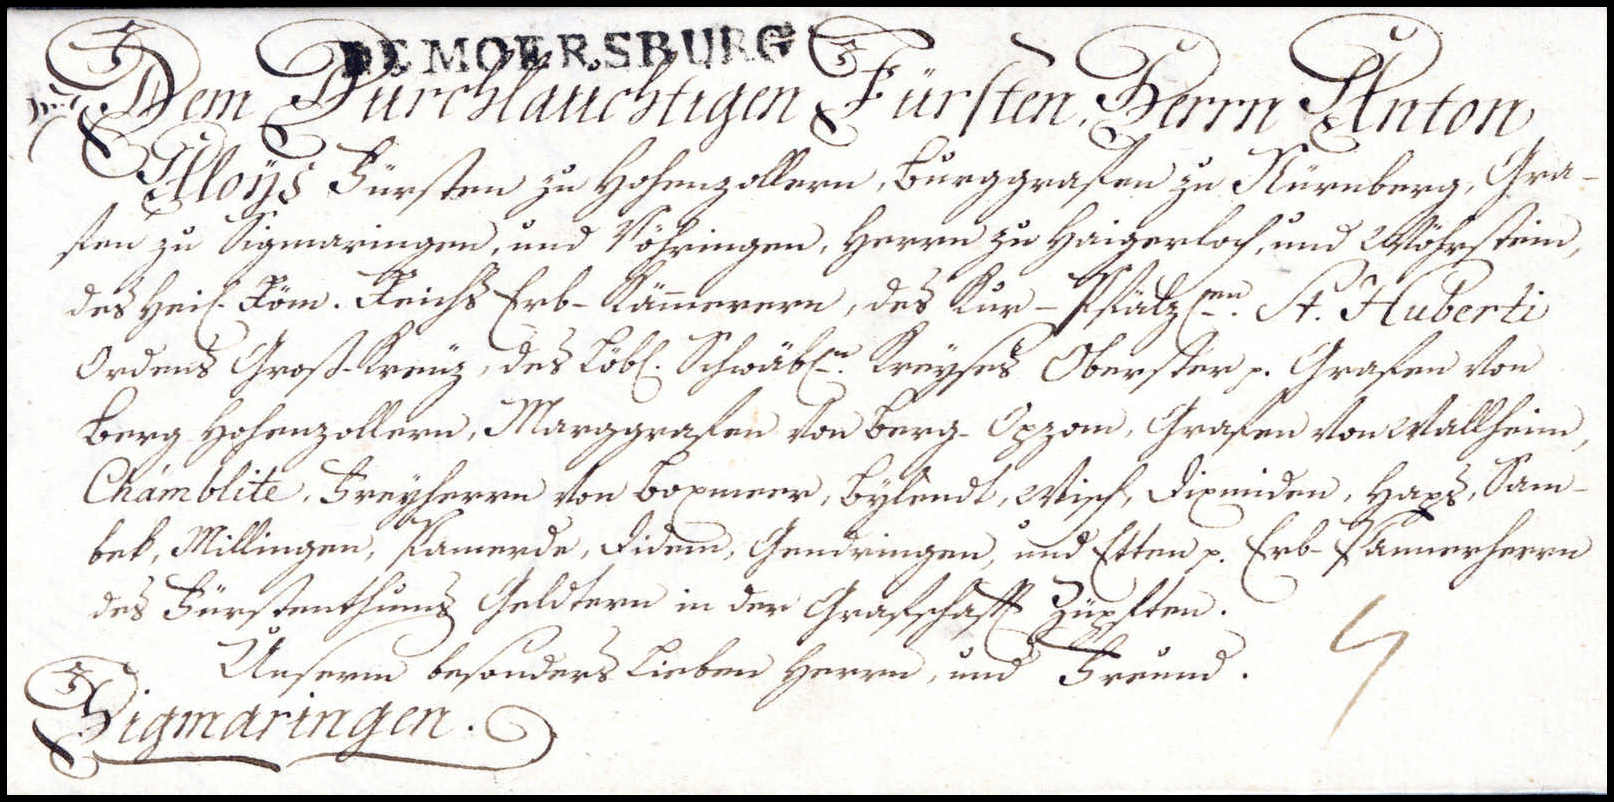 DE MOERSBURG
Dem Durchlauchtigen Fürsten, Herrn Anton
Aloÿs Fürsten zu Hohenzollern, Burggrafen zu Nürnberg, Gra-
fen zu Sigmaringen, und Vöhringen, Herrn zu Haigerloch, und Wöhrstein,
des Heil. Röm. Reichs Erb-Kämmerern, des Kur-Pfälz.en St. Huberti
Ordens Groß-Kreuz, des Löbl. Schwäb.n Kreÿses Oberster p. Grafen von
Berg Hohenzollern, Marggrafen von Berg-Opzom, Grafen von Wallheim,
Chamblite, Freÿherrn von Boxmeer, Bÿlendt, Wisch, Dixmiden, Haps, Sam-
bek, Millingen, Pamerde, Didem, Gendringen, und Etten p. Erb-Pannerherrn
des Fürstenthums Geldtern in der Grafschaft Züpften.
Unserm besonders lieben Herrn, und Freund.
Sigmaringen.